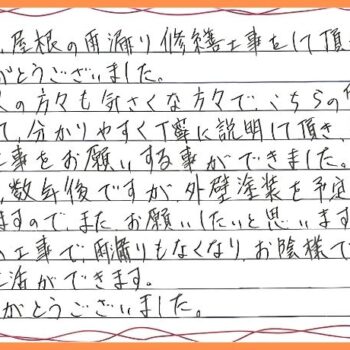 、屋根の雨漏り修繕工事をして頂
がとうございました。
の方々も気さくな方々で、こちらの
て、分かりやすく丁寧に説明して頂き
事をお願いする事ができました。
、数年後ですが、外壁塗装を予定
ますので、また、お願いしたいと思います
工事で、雨漏りもなくなり、お陰様で
活ができます。
がとうございました。